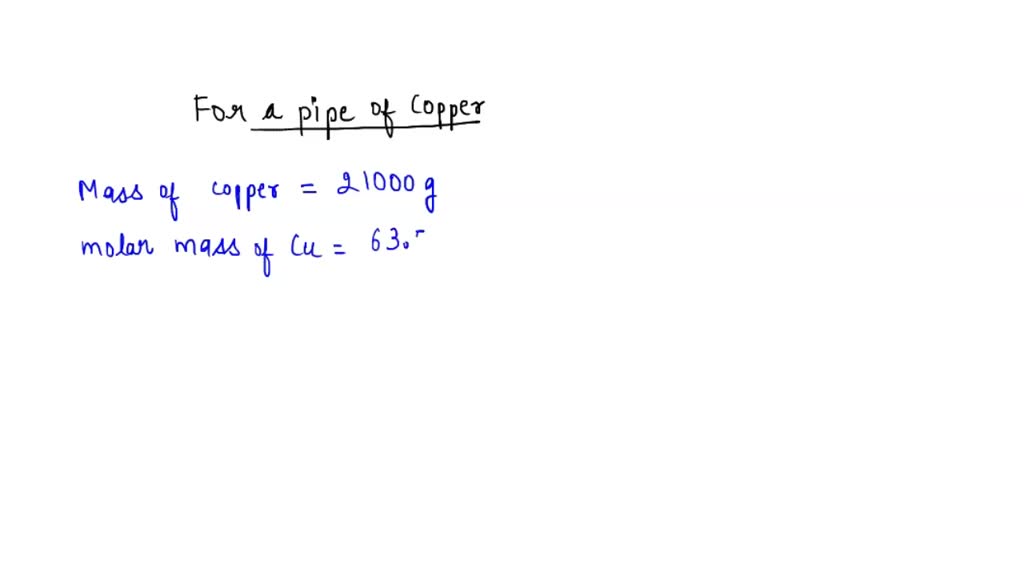 For a pipe of Copper
Mass of copper = 21000 g
molar mass of Cu = 63.